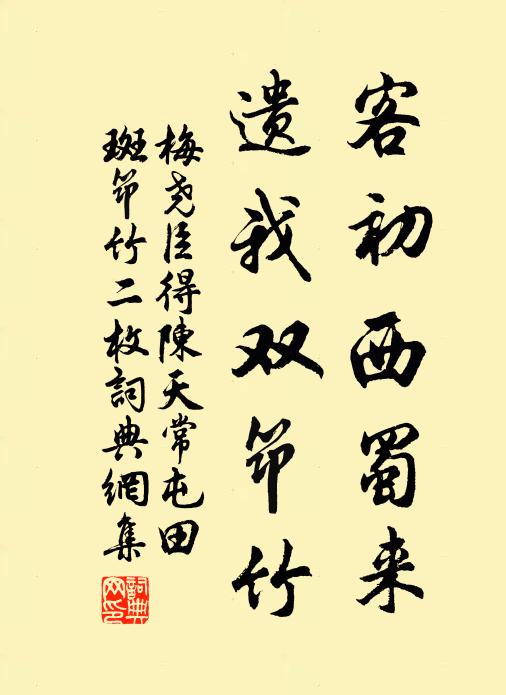 客初西蜀来
遗我双笻竹
梅尧臣得陳天常屯田
斑笻竹二枚詞典網集
詞典網印